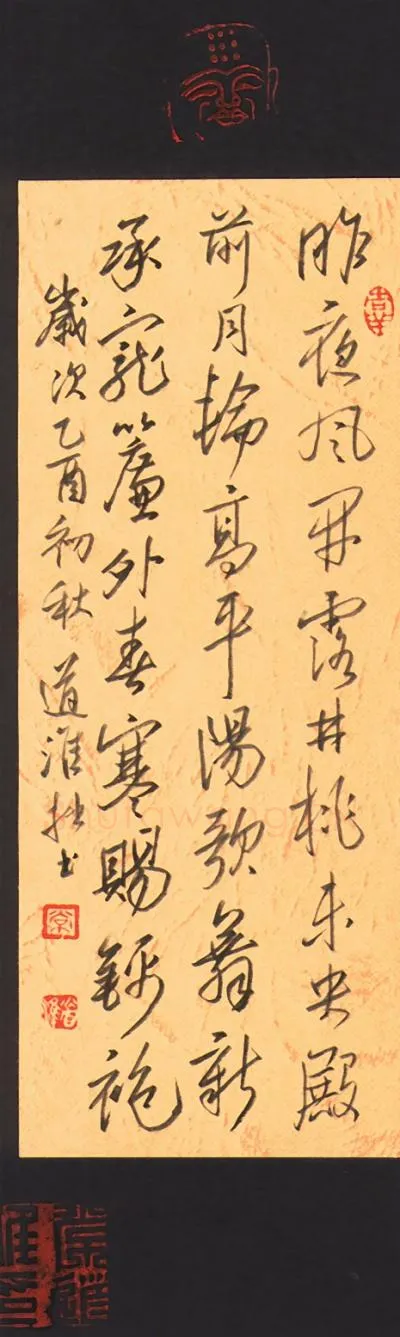 昨夜風開露井桃未央殿
前月輪高平陽歌舞新
承寵簾外春寒賜錦袍
歲次乙酉初秋 道淮拙书